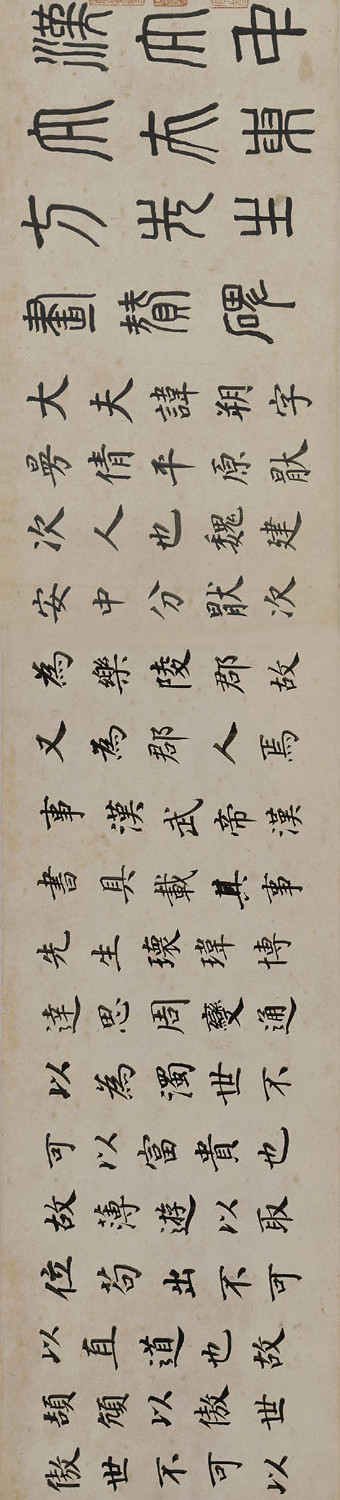 漢大中
大夫東
方朔之
畫贊碑
大夫諱朔字
曼倩平原猒
次人也魏建
安中分猒次
為樂陵郡故
又為郡人焉
事漢武帝漢
書具載其事
先生瓌瑋博
達思周變通
以為濁世不
可以富貴也
故薄遊以取
位苟出不可
以直道也故
頡頏以傲世
傲世不可以